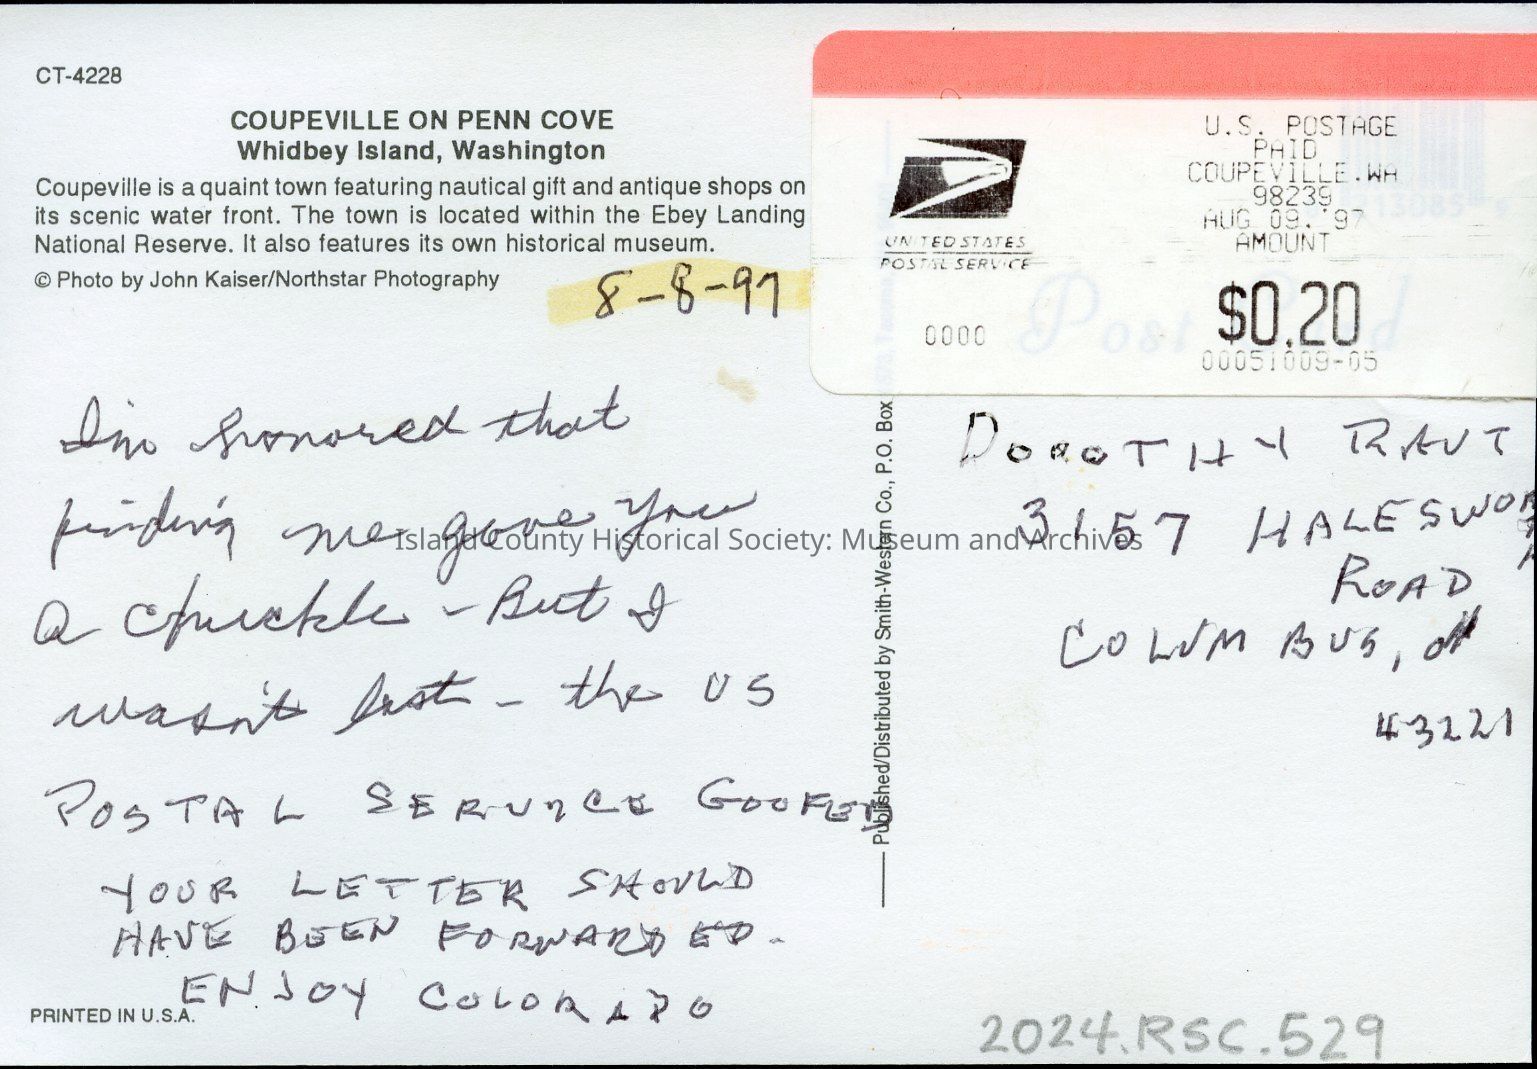 CT-4228
COUPEVILLE ON PENN COVE
Whidbey Island, Washington
Coupeville is a quaint town featuring nautical gift and antique shops on
its scenic water front. The town is located within the Ebey Landing
National Reserve. It also features its own historical museum.
© Photo by John Kaiser/Northstar Photography
8-8-97
I'm honored that
finding me gave you
a chuckle - But I
wasn't lost - the US
POSTAL SERVICE GOOFED
YOUR LETTER SHOULD
HAVE BEEN FORWARDED.
ENJOY COLORADO
PRINTED IN U.S.A.
Published/Distributed by Smith-Western Co., P.O. Box
UNITED STATES
POSTAL SERVICE
0000
U.S. POSTAGE
PAID
COUPEVILLE.WA
98239
AUG 09. '97
AMOUNT
$0.20
00051009-05
Post
DOROTHY
3157 HALESWOR
ROAD
COLUMBUS,
43221
Island County Historical Society: Museum and Archives
2024.RSC.529